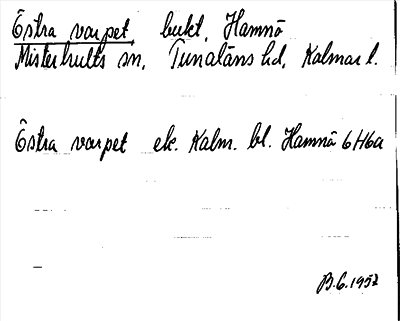 Östra varpet, bukt, Hamnö
Misterhults sn, Tunaläns hd, Kalmar l.
Östra varpet ek. Kalm. bl. Hamnö 6H6a
B.G. 1957